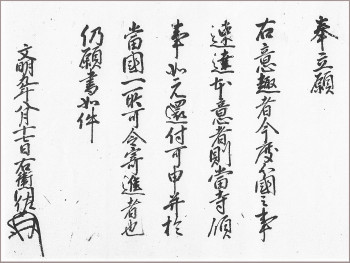 奉立願
右意趣者今度入國之事
速達本意者則當寺領
事如元還付可申并於
當國一所可令寄進者也
仍願書如件
文明九年八月十一日右衛門佐